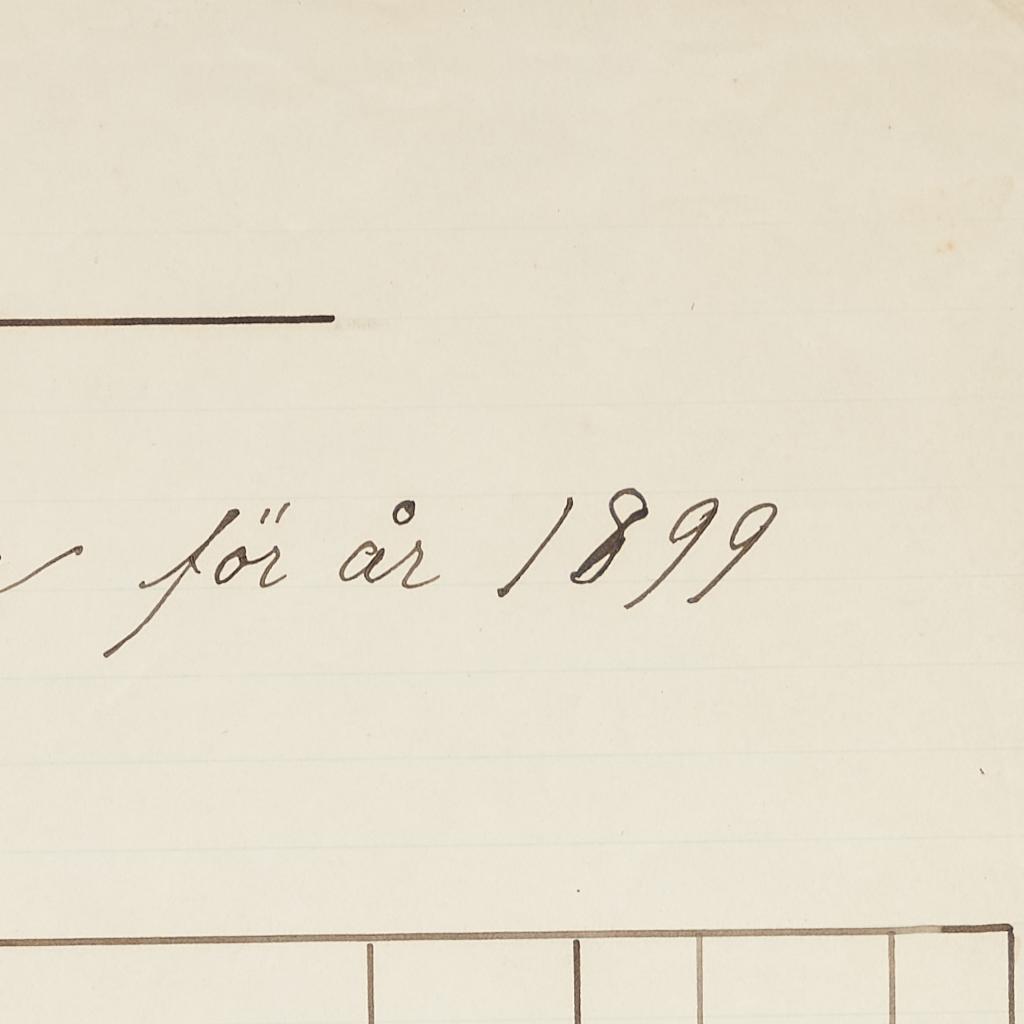 för år 1899